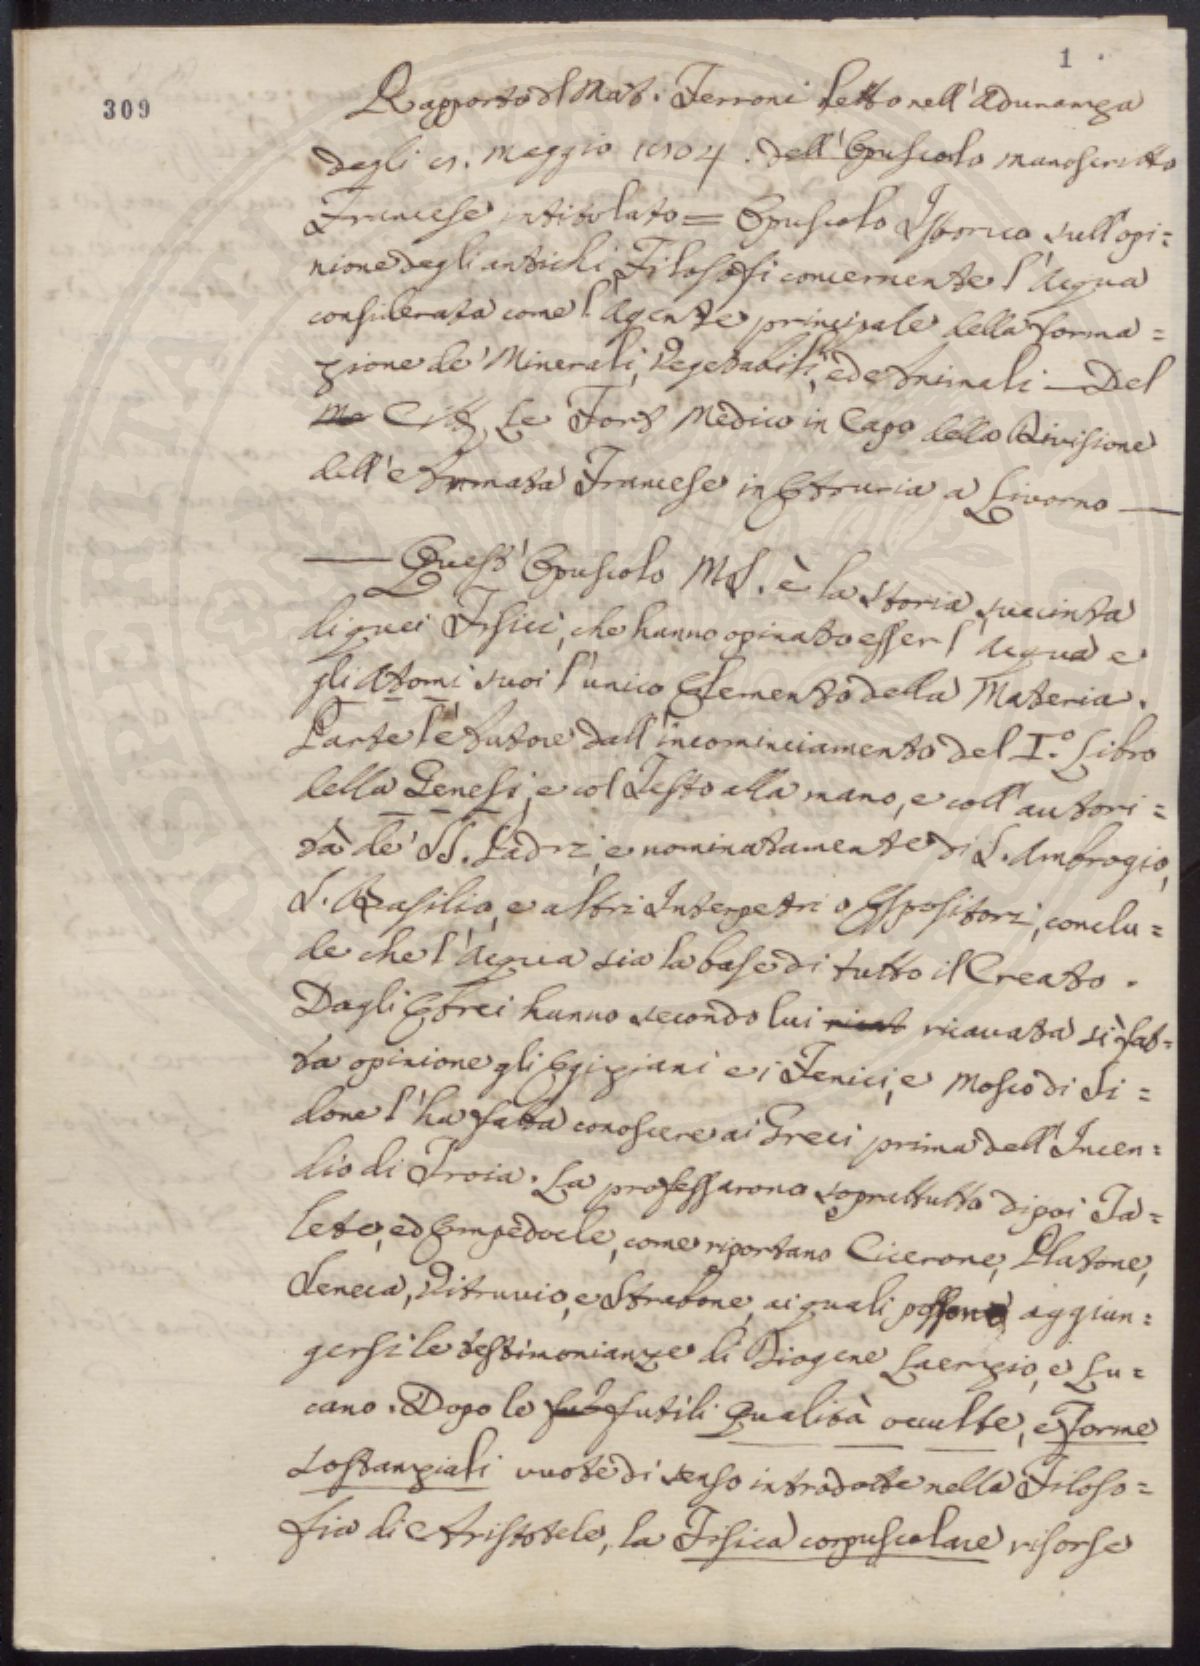 1
309
Rapporto di Mat. Ferroni letto nell'Adunanza
degli 1804. dell'Opuscolo manoscritto
Francese intitolato = Opuscolo Istorico sull'opi=
nione degli antichi Filosofi concernente l'Acqua
considerata come l'Agente principale della forma=
zione de' Minerali, Vegetabili, ed Animali — Del
Citt. Le Fort Medico in Capo della Divisione
dell'Armata Francese in Etruria a Livorno —
— Quest'Opuscolo MS. è la storia succinta
di quei Fisici, che hanno opinato esser l'Acqua e
gli Atomi suoi l'unico Elemento della Materia.
Parte l'Autore dall'incominciamento del I.º Libro
della Genesi, e col Testo alla mano, e coll'autori=
tà de' SS. Padri, e nominatamente di S. Ambrogio,
S. Basilio, e altri Interpetri o Espositori, conclu=
de che l'Acqua sia la base di tutto il Creato.
Dagli Ebrei hanno secondo lui ricavata sì fat=
ta opinione gli Egiziani e i Fenici, e Mosco di Si=
done l'ha fatta conoscere ai Greci prima dell'Incen=
dio di Troia. La professarono soprattutto dipoi Ta=
lete, ed Empedocle, come riportano Cicerone, Platone,
Seneca, Vitruvio, e Strabone, ai quali possono aggiun=
gersi le testimonianze di Diogene Laerzio, e Lu=
cano. Dopo le futili qualità occulte, e forme
sostanziali vuote di senso introdotte nella Filoso=
fia di Aristotele, la Fisica corpuscolare risorse